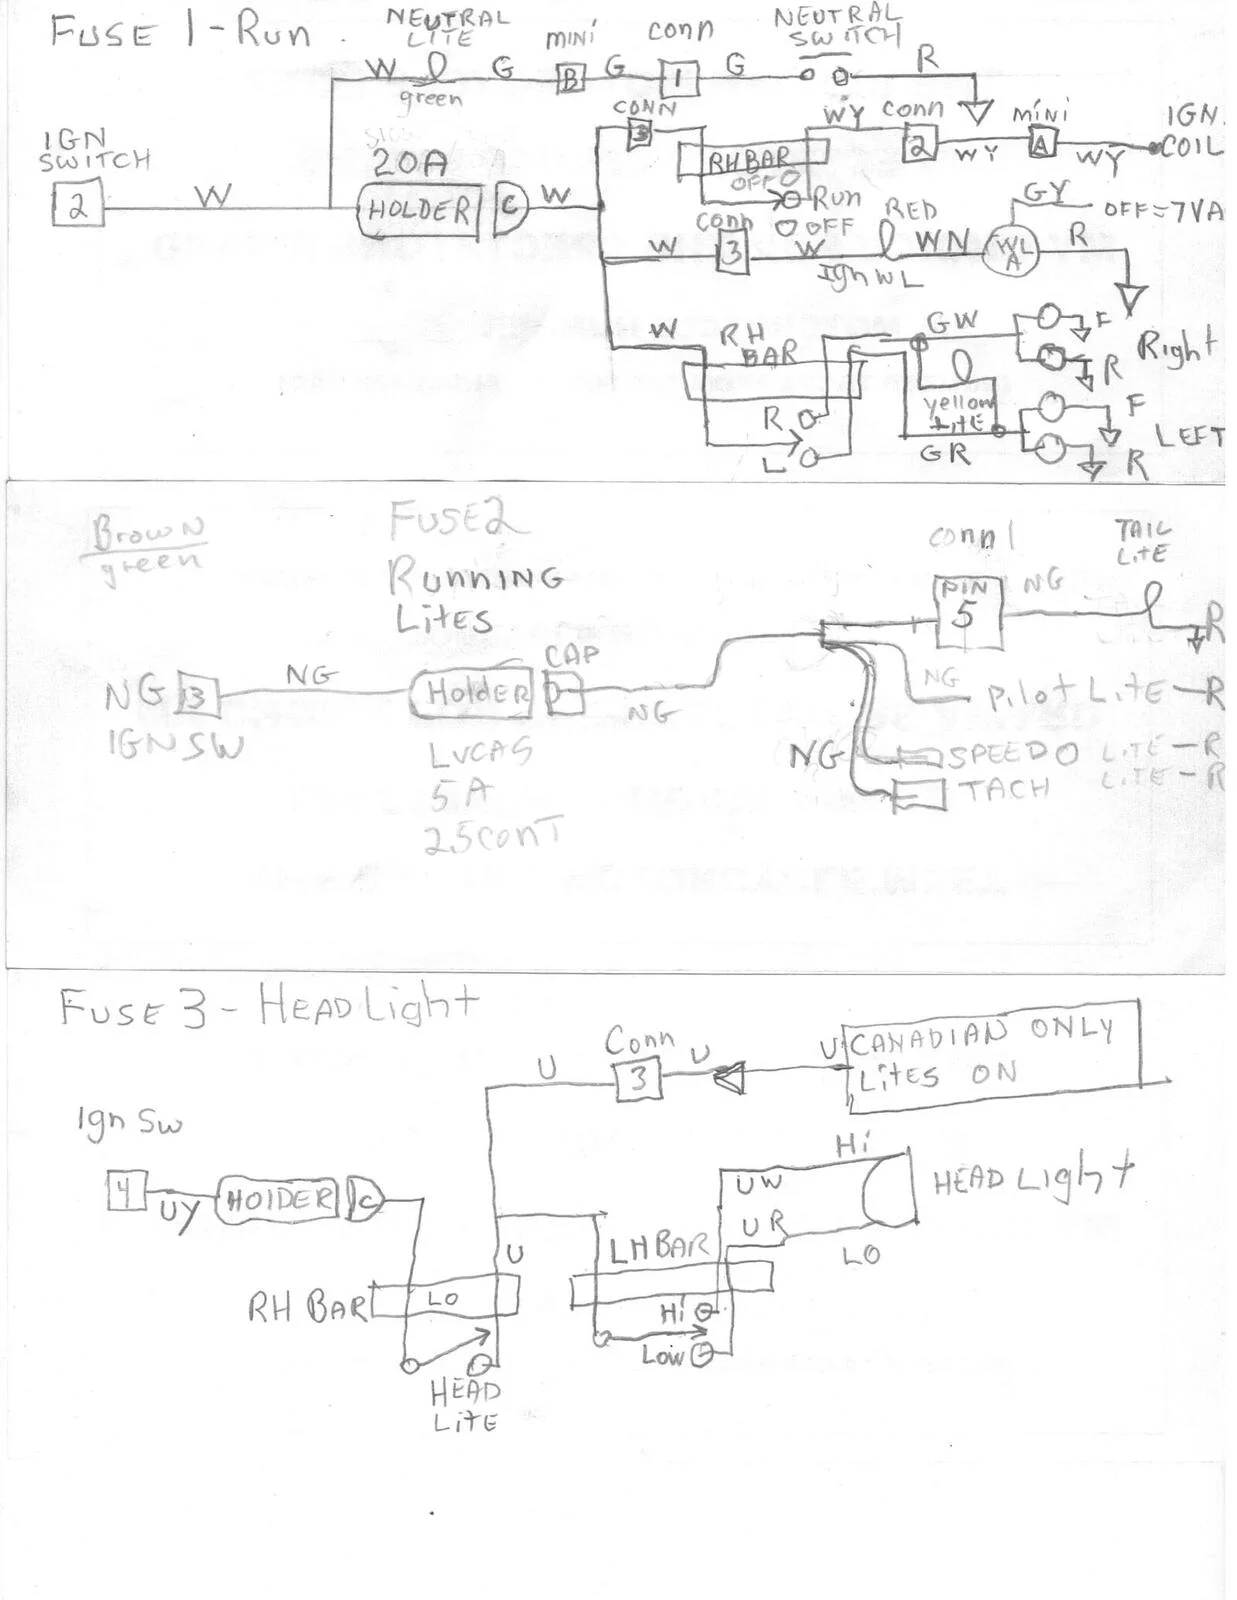 FUSE 1-RUN
NEUTRAL
LITE
MINI
CONN
NEUTRAL
SWITCH
W
G
B
G
1
G
R
green
IGN
SWITCH
2
W
20A
HOLDER
C
W
CONN
3
RH BAR
OFF
Run
OFF
WY
CONN
2
WY
MINI
A
WY
IGN.
COIL
W
CONN
3
W
Ign WL
RED
WN
WL
A
GY
OFF=7VA
R
W
RH
BAR
R
L
GW
yellow
LITE
GR
F
R
Right
F
R
LEFT
Brown
green
FUSE2
RUNNING
LITES
NG 3
IGN SW
NG
HOLDER
CAP
D
NG
LUCAS
5A
25CONT
CONN 1
PIN
5
NG
TAIL
LITE
R
NG
PILOT LITE-R
NG
SPEEDO LITE-R
TACH LITE-R
FUSE 3 - HEADLight
Conn
U
3
U
U
CANADIAN ONLY
LITES ON
Ign Sw
4
UY
HOLDER
C
U
RH BAR
LO
HEAD
LITE
LH BAR
Hi
Low
Hi
UW
UR
LO
HEADLight